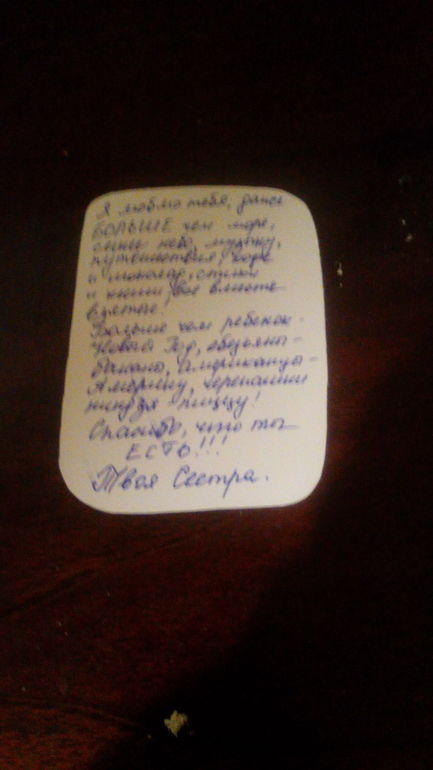 Я люблю тебя, даже
БОЛЬШЕ чем море,
небо, музыку,
путешествия, кофе
и шоколад, стихи
и книги, всё вместе
взятое!
Больше чем ребенок -
Новый Год, обезьяны -
бананы, американцы -
Америку, черепашки
ниндзя - пиццу!
Спасибо, что ты
ЕСТЬ!!!
Твоя Сестра.